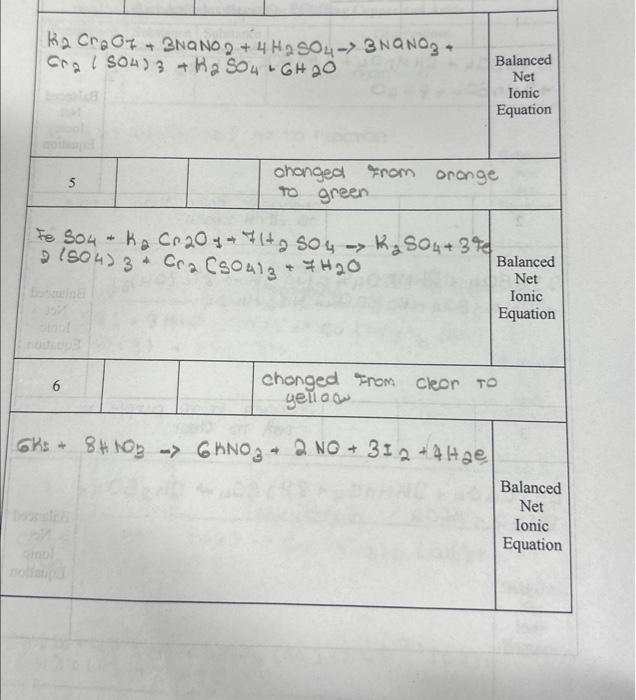 K2 Cr2O7 + 3NaNO2 + 4H2SO4 -> 3NaNO3 +
Cr2 (SO4)3 + K2 SO4 + 6H2O
Balanced
Net
Ionic
Equation
5
changed from orange
to green
Fe SO4 + K2 Cr2O7 + 7H2 SO4 -> K2SO4 + 3Fe
2(SO4)3 + Cr2(SO4)3 + 7H2O
Balanced
Net
Ionic
Equation
6
changed from clear to
yellow
6KI + 8HNO3 -> 6KNO3 + 2NO + 3I2 + 4H2O
Balanced
Net
Ionic
Equation